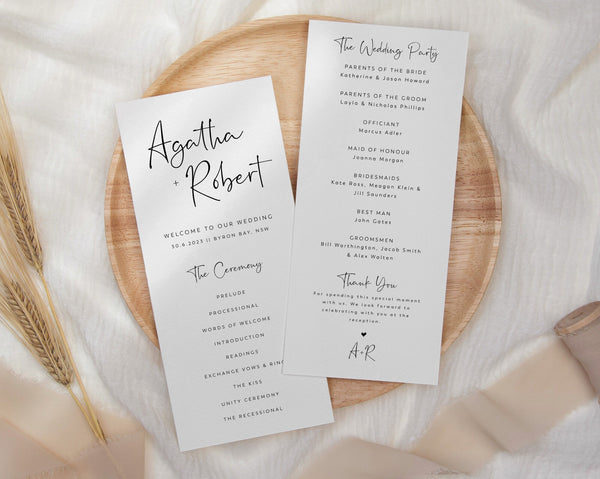 Agatha
+ Robert
WELCOME TO OUR WEDDING
30.6.2023 || BYRON BAY, NSW
The Ceremony
PRELUDE
PROCESSIONAL
WORDS OF WELCOME
INTRODUCTION
READINGS
EXCHANGE VOWS & RINGS
THE KISS
UNITY CEREMONY
THE RECESSIONAL
The Wedding Party
PARENTS OF THE BRIDE
Katherine & Jason Howard
PARENTS OF THE GROOM
Layla & Nicholas Phillips
OFFICIANT
Marcus Adler
MAID OF HONOUR
Joanna Morgan
BRIDESMAIDS
Kate Ross, Meagan Klein &
Jill Saunders
BEST MAN
John Gates
GROOMSMEN
Bill Worthington, Jacob Smith
& Alex Walten
Thank You
For spending this special moment
with us. We look forward to
celebrating with you at the
reception.
A+R